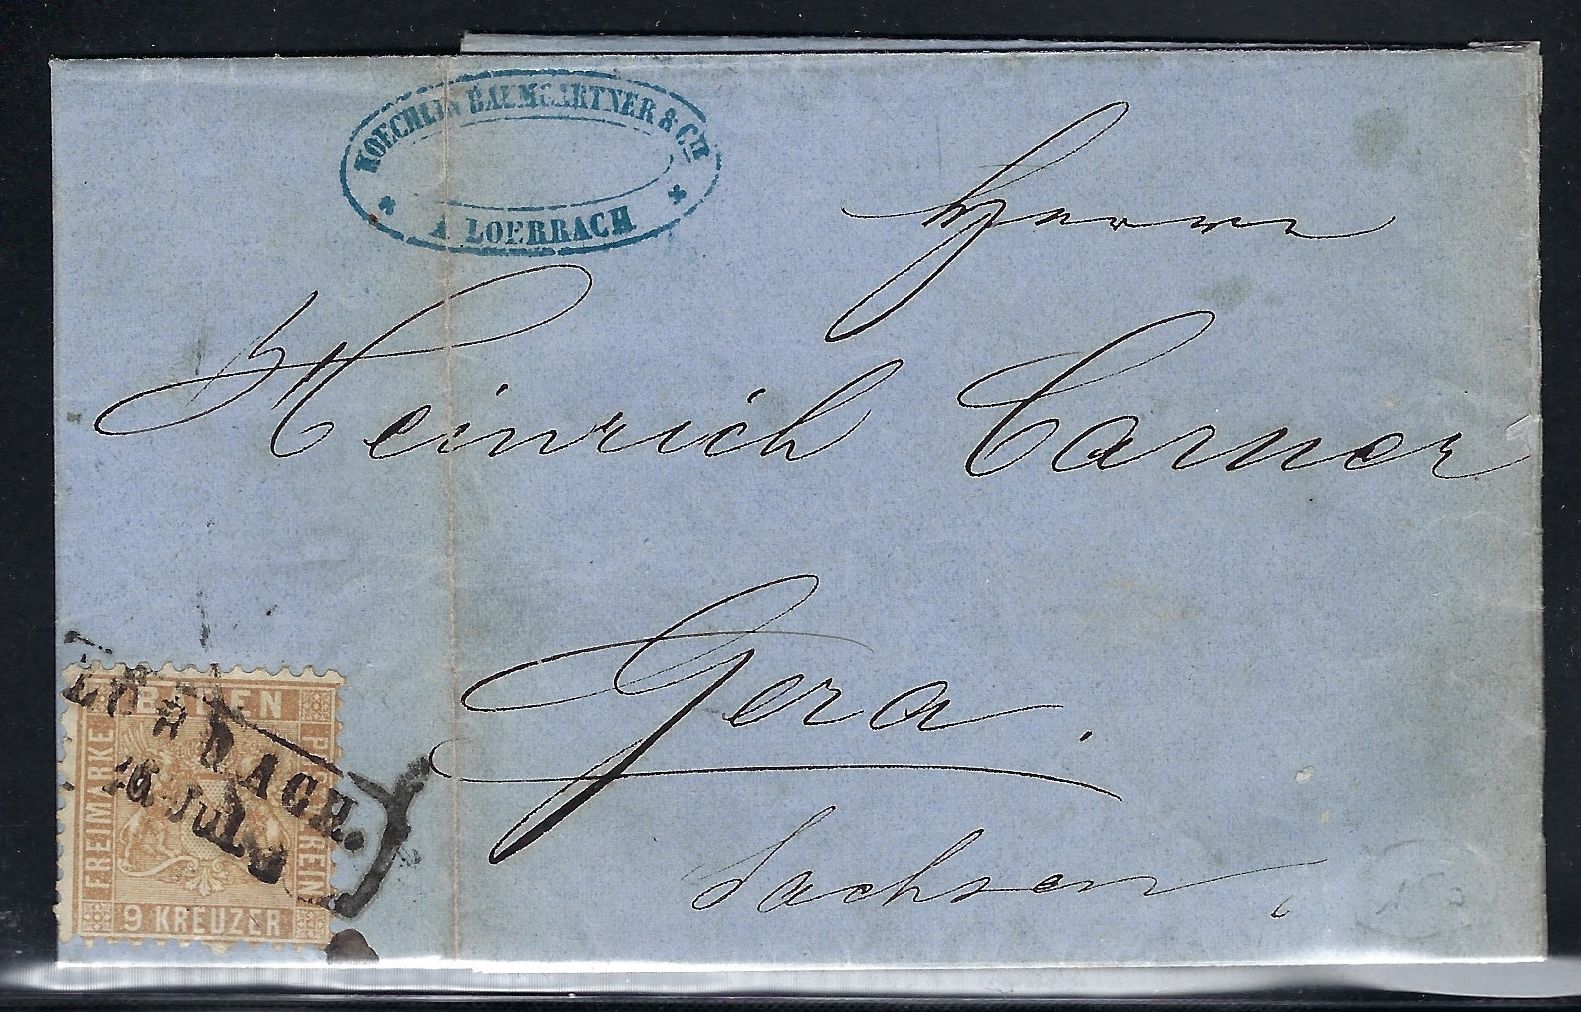 KOECHLIN BAUMGARTNER & CIE
A LOERRACH
Herrn
Heinrich Carner
Gera.
Sachsen
BADEN
FREIMARKE
POSTVEREIN
9 KREUZER
LÖRRACH.
16 JUL